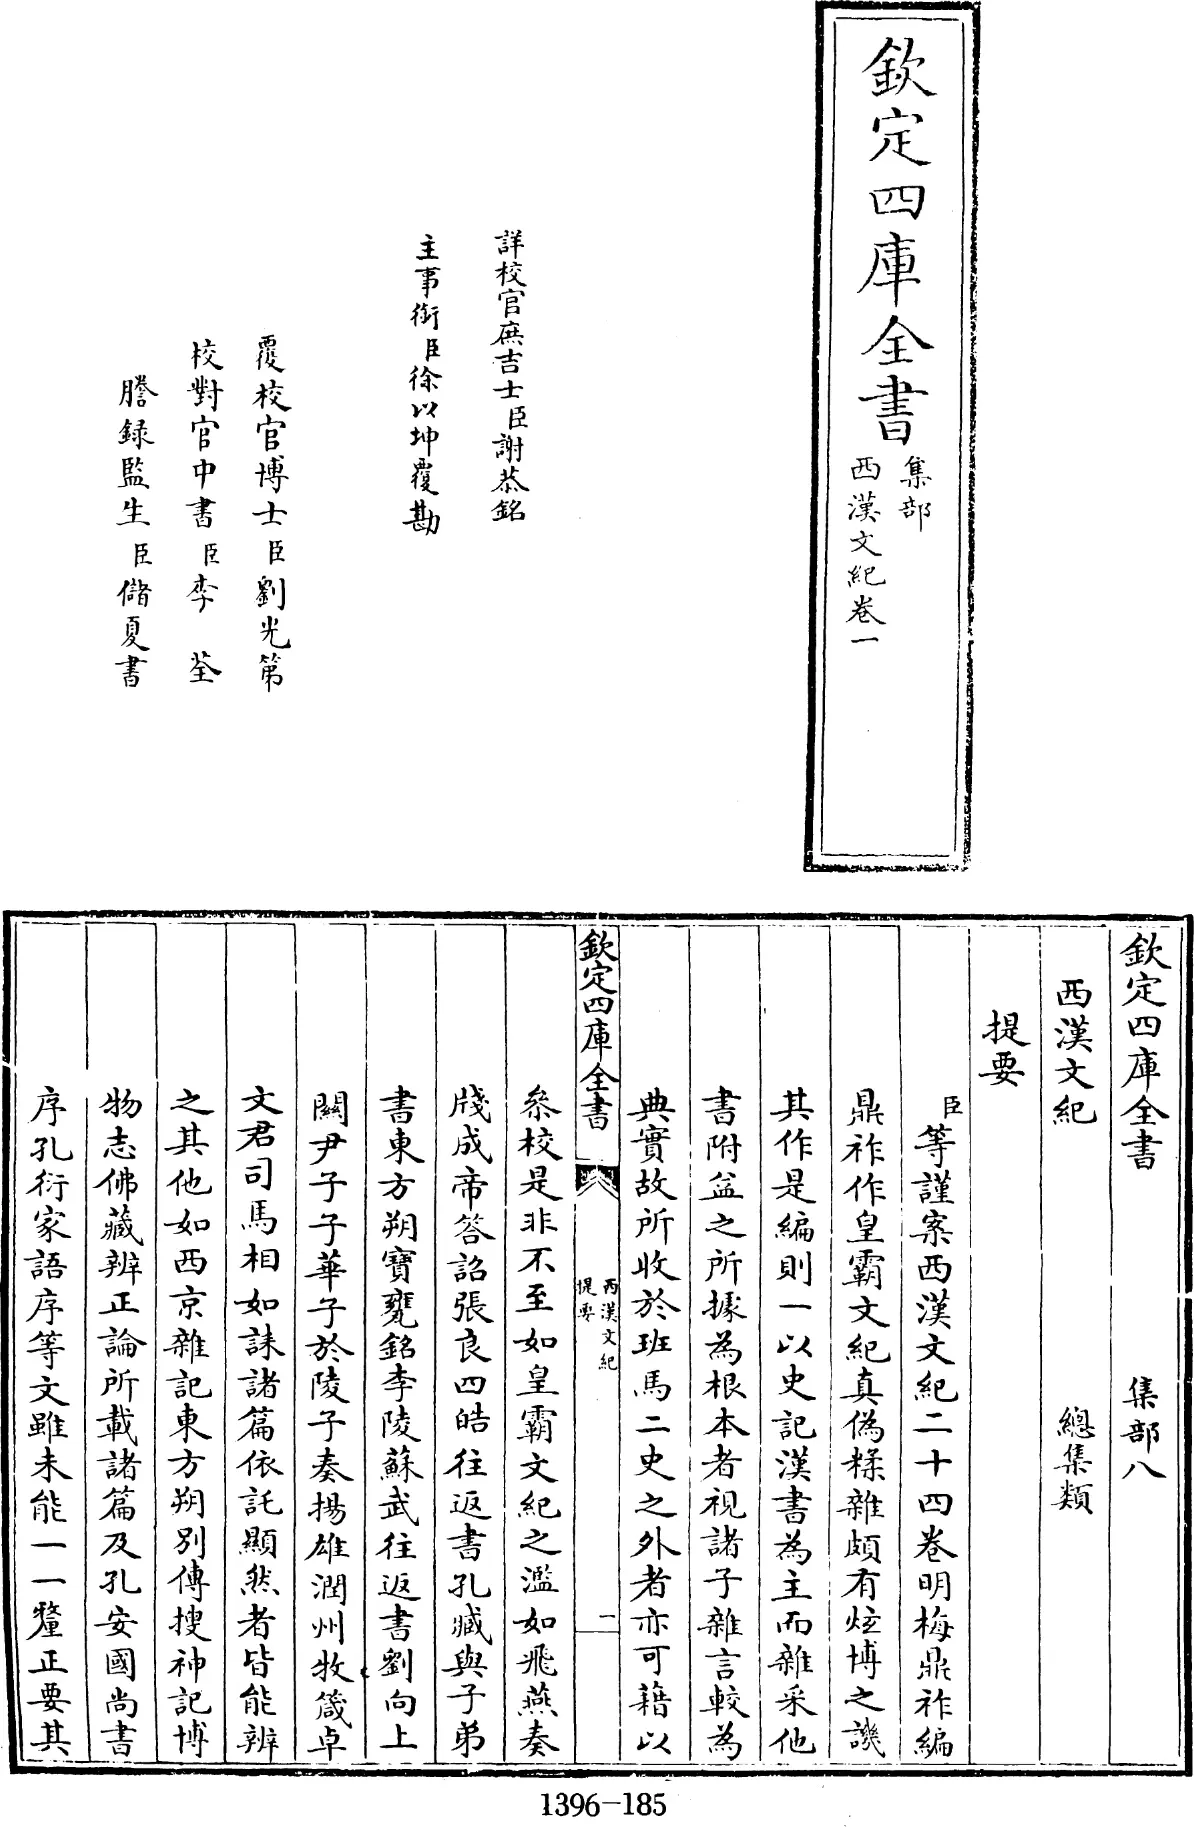 欽定四庫全書
集部
西漢文紀卷一
詳校官庶吉士臣謝恭銘
主事銜臣徐以坤覆勘
覆校官博士臣劉光第
校對官中書臣李荃
謄錄監生臣儲夏書
欽定四庫全書 集部八
西漢文紀 總集類
提要
臣等謹案西漢文紀二十四卷明梅鼎祚編
鼎祚作皇霸文紀真偽糅雜頗有炫博之譏
其作是編則一以史記漢書為主而雜采他
書附益之所據為根本者視諸子雜言較為
典實故所收於班馬二史之外者亦可藉以
欽定四庫全書
西漢文紀
提要
一
叅校是非不至如皇霸文紀之濫如飛燕奏
牋成帝答詔張良四皓往返書孔臧與子弟
書東方朔寶甕銘李陵蘇武往返書劉向上
關尹子子華子於陵子奏揚雄潤州牧箴卓
文君司馬相如誄諸篇依託顯然者皆能辨
之其他如西京雜記東方朔別傳搜神記博
物志佛藏辨正論所載諸篇及孔安國尚書
序孔衍家語序等文雖未能一一釐正要其
1396-185